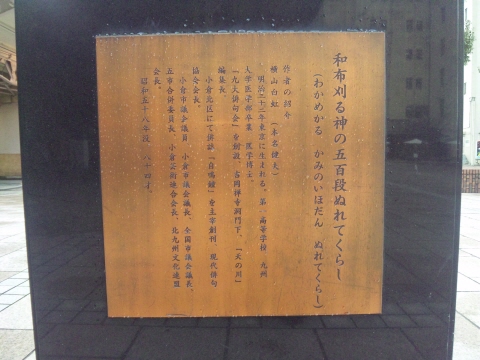 和布刈る神の五百段ぬれてくらし
(わかめかる かみのいほだん ぬれてくらし)
作者の紹介
横山白虹 (本名健夫)
明治二十二年東京に生まれる。第一高等学校 九州
大学医学部卒業 医学博士。
「九大俳句会」を創設、吉岡禅寺洞門下、「天の川」
編集長
小倉北区にて俳誌「自鳴鐘」を主宰創刊 現代俳句
協会会長。
小倉市議会議員 小倉市議会議長、全国市議会議長、
五市合併委員長、小倉芸術連合会長、北九州文化連盟
会長。
昭和五十八年没 八十四才。